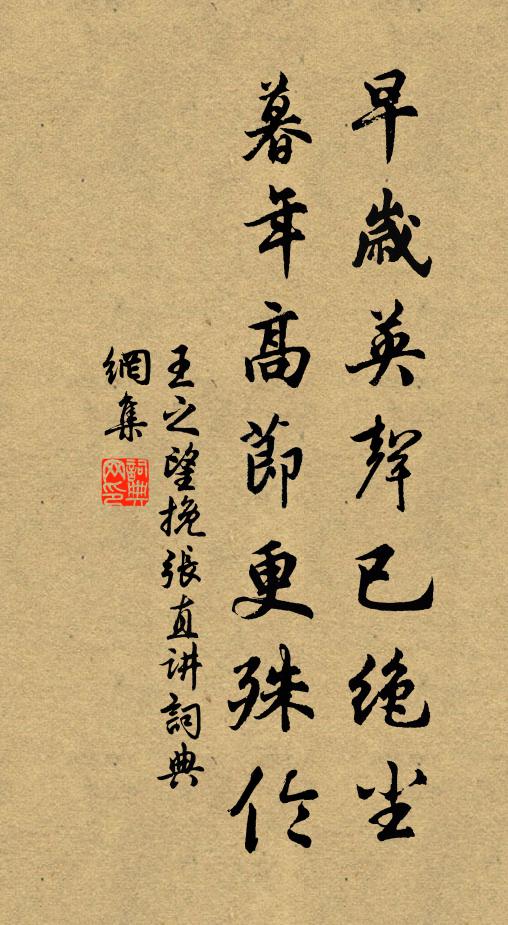 早歲英聲已絶尘
暮年高節更殊伦
王之望挽張直讲詞典
網集
詞典
网印